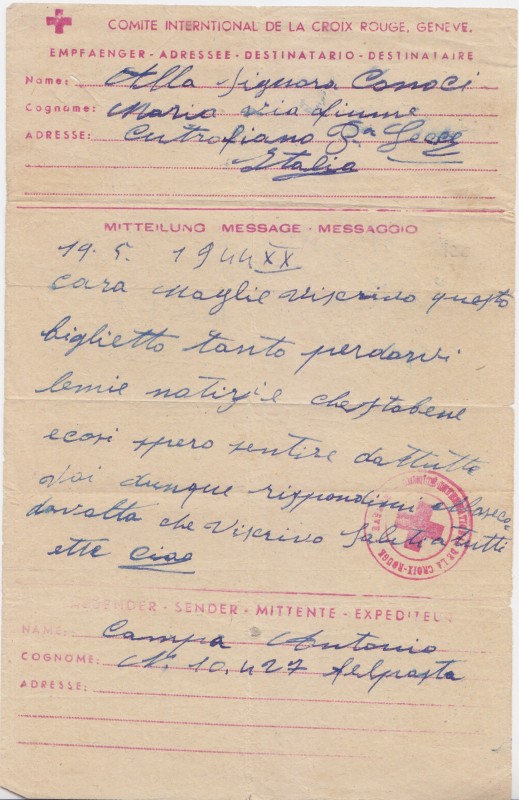 COMITE INTERNTIONAL DE LA CROIX ROUGE, GENEVE.
EMPFAENGER - ADRESSEE - DESTINATARIO - DESTINATAIRE
Name: Alla Signora Conoci
Cognome: Maria Via Fiume
ADRESSE: Cutrofiano Pr. Lecce
Italia
MITTEILUNG MESSAGE - MESSAGGIO
19. 5. 1944 XX
Cara Moglie Viscrivo questo
biglietto tanto perdarvi
lemie notizie chestobene
ecosi spero sentire dattutte
Voi dunque rispondimi
davolta che Viscrivo Saluti atutti
ette Ciao
DE LA CROIX-ROUGE
SENDER - MITTENTE - EXPEDITEUR
NAME: Campa Antonio
COGNOME: N. 10.427
ADRESSE: